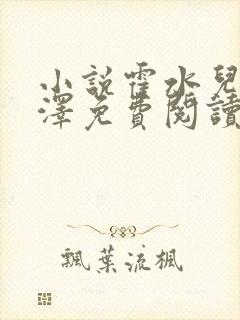 小說霍水兒
澤免費閱讀
飄葉流楓